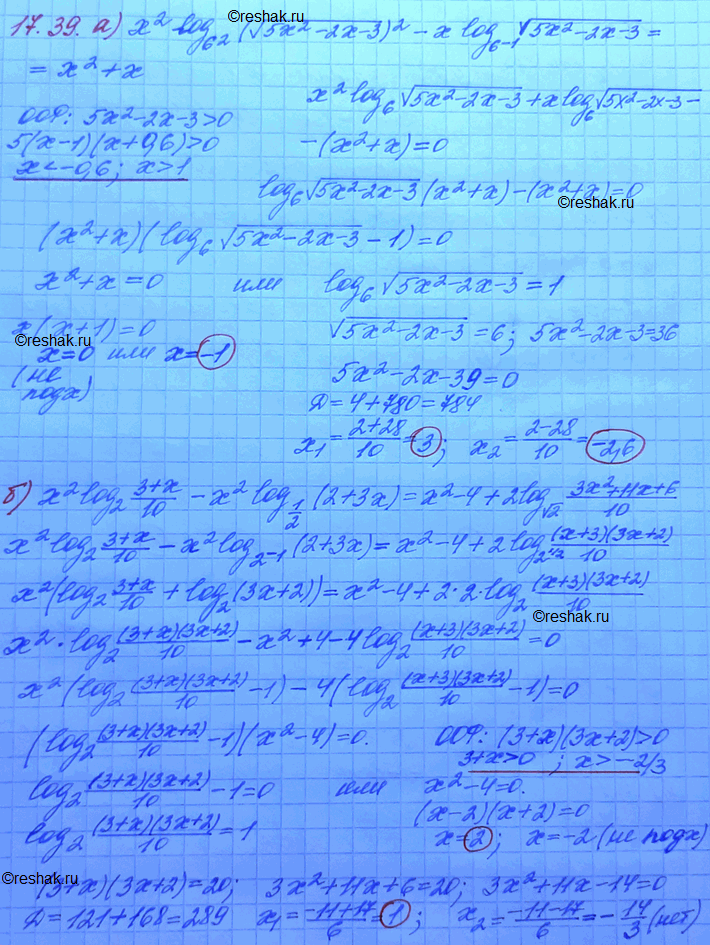 ©reshak.ru
17.39. а) x² log₆² (√(5x²-2x-3))² - x log₆₋₁ √(5x²-2x-3) =
= x² + x
x² log₆ √(5x²-2x-3) + x log₆ √(5x²-2x-3) -
ООФ: 5x²-2x-3>0
5(x-1)(x+0,6)>0
-(x²+x)=0
x<-0,6; x>1
log₆ √(5x²-2x-3) (x²+x) - (x²+x)=0
©reshak.ru
(x²+x)(log₆ √(5x²-2x-3) - 1)=0
x²+x=0 или log₆ √(5x²-2x-3) = 1
x(x+1)=0
√(5x²-2x-3) = 6; 5x²-2x-3=36
©reshak.ru
x=0 или x=-1
(не подх)
5x²-2x-39=0
D=4+780=784
x₁ = (2+28)/10 = 3; x₂ = (2-28)/10 = -2,6
б) x² log₂ (3+x)/10 - x² log_(1/2) (2+3x) = x²-4+2log_√2 (3x²+11x+6)/10
x² log₂ (3+x)/10 - x² log₂₋₁ (2+3x) = x²-4+2log_(2^(1/2)) (x+3)(3x+2)/10
x²(log₂ (3+x)/10 + log₂ (3x+2)) = x²-4+2·2·log₂ (x+3)(3x+2)/10
©reshak.ru
x² · log₂ (3+x)(3x+2)/10 - x²+4-4log₂ (x+3)(3x+2)/10 = 0
x² (log₂ (3+x)(3x+2)/10 - 1) - 4(log₂ (x+3)(3x+2)/10 - 1)=0
(log₂ (3+x)(3x+2)/10 - 1)(x²-4)=0.
ООФ: (3+x)(3x+2)>0
3+x>0 ; x>-2/3
log₂ (3+x)(3x+2)/10 - 1=0 или x²-4=0.
(x-2)(x+2)=0
log₂ (3+x)(3x+2)/10 = 1
x=2; x=-2 (не подх)
©reshak.ru
(3+x)(3x+2)=20; 3x²+11x+6=20; 3x²+11x-14=0
D=121+168=289 x₁ = (-11+17)/6 = 1; x₂ = (-11-17)/6 = -14/3 (нет)
©reshak.ru